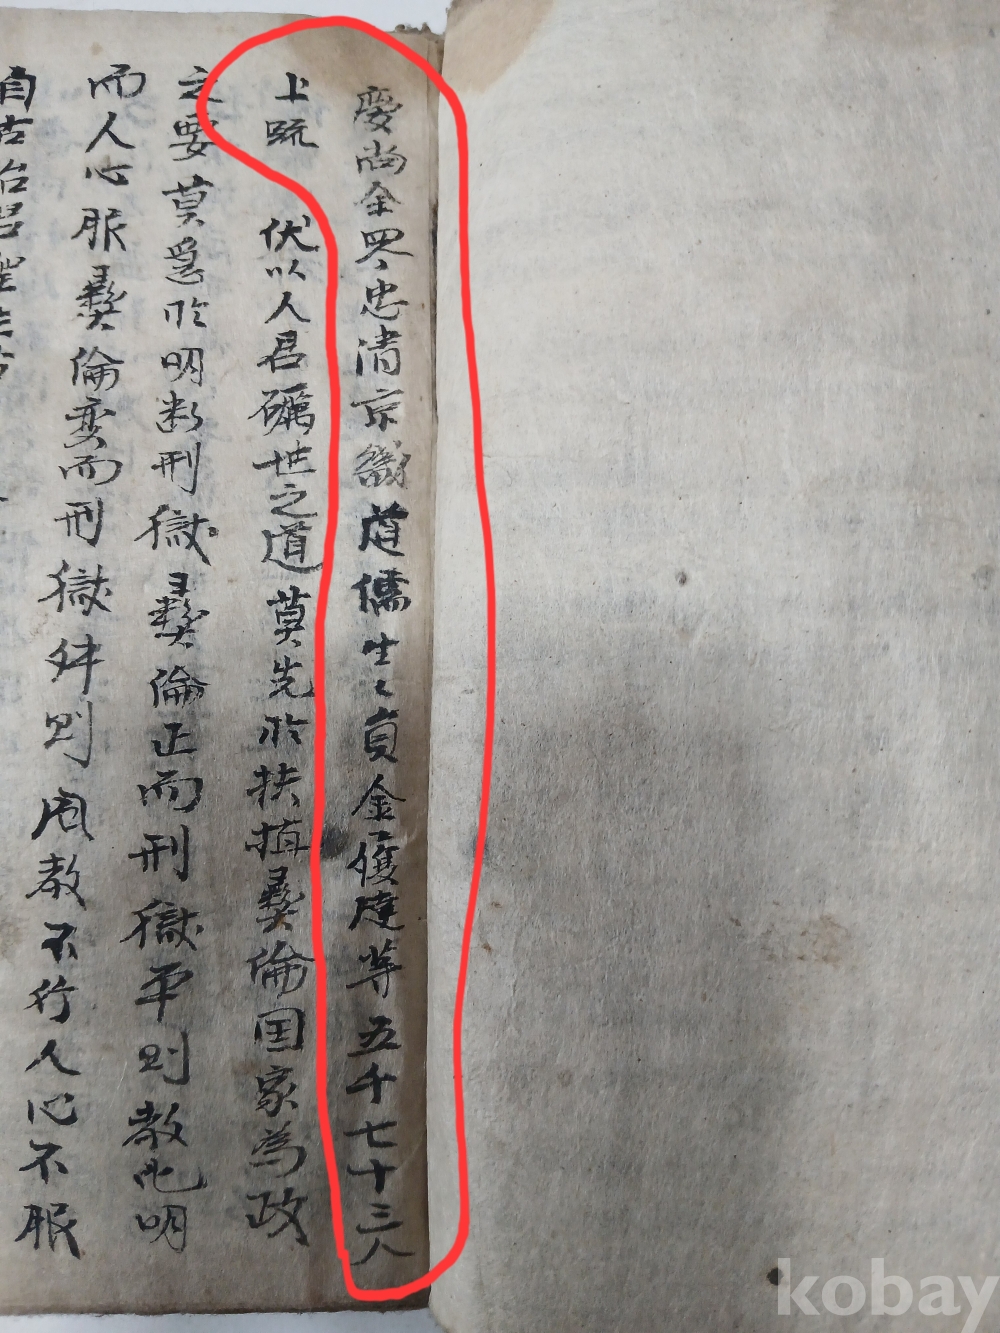 慶尚全罗忠清京畿道儒生生員金㣴達等五千七十三人
上疏 伏以人君礪世之道莫先於扶植彛倫国家為政
之要莫急於明断刑獄彛倫正而刑獄平则教化明
而人心服彛倫変而刑獄舛则風教不行人心不服
自古
kobay